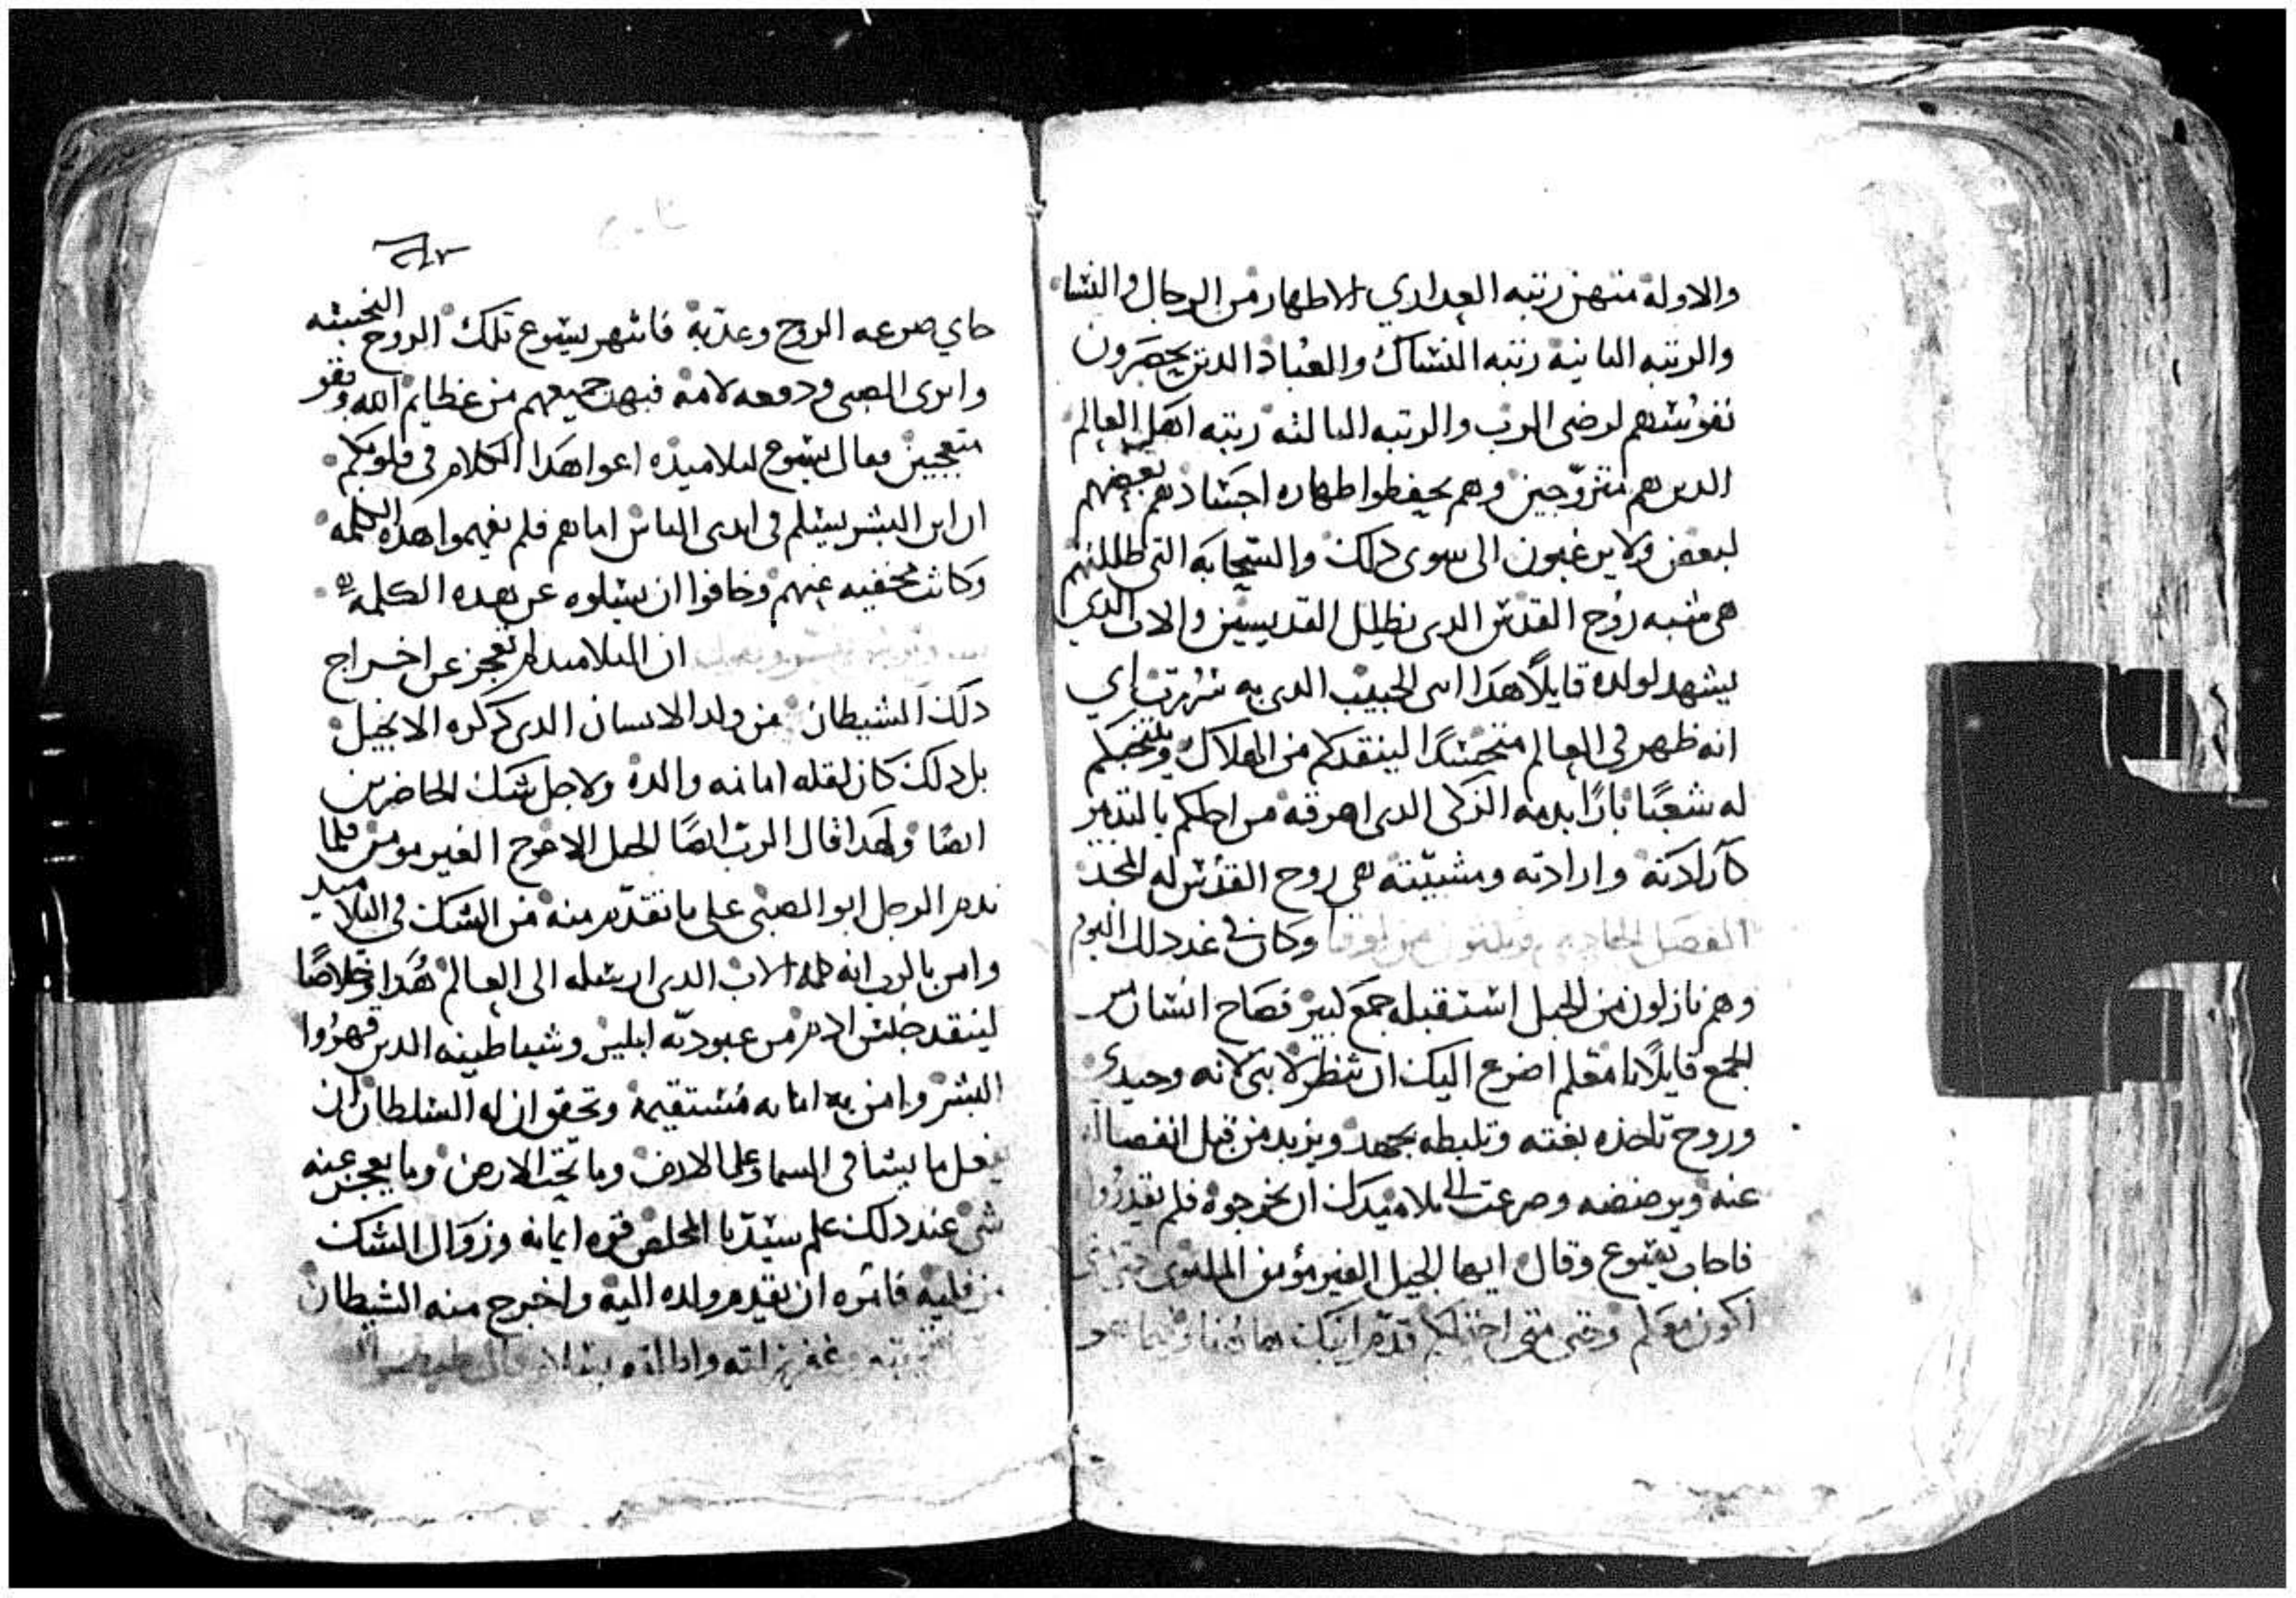 والاوله منهن رتبه العداري الاطهار من الرجال والنسا
والرتبه التانيه رتبه النساك والعباد الدين يحصرون
نفوسهم لرضى الرب والرتبه التالته رتبه اهل العالم
الدين هم متزوجين وهم يحفظوا طهاره اجسادهم بعضهم
لبعض ولا يرغبون الى سوى دلك والسحابه التى ظللتهم
هى شبه روح القدس الدى يظلل القديسين والاب الدي
يشهد لولده قايلًا هدا ابنى الحبيب الدى به سررت اي
انه ظهر فى العالم متجسدًا لينقدكم من الهلاك وينتخبكم
له شعبًا بارًا بدمه الزكى الدى اهرقه من اجلكم بالتدبير
كارادته وارادته ومشيته هى روح القدس له المجد
الفصل الحادي وتلتون من لوقا وكان فى غد دلك اليوم
وهم نازلون من الجبل استقبله جمع كبير فصاح انسان من
الجمع قايلًا يا معلم اضرع اليك ان تنظر لابنى لانه وحيدي
وروح تاخده بغته وتلبطه بجهد ويزبد من قبل انفصاله
عنه ويرضضه وضرعت الى تلاميدك ان يخرجوه فلم يقدروا
فاجاب يسوع وقال ايها الجيل الغير مؤمن الملتوى حتى متى
اكون معكم وحتى متى احتملكم قدم ابنك هاهنا وفيما هو
جاي صرعه الروح وعدبه فانتهر يسوع تلك الروح النجسه
وابرى الصبى ودفعه لابيه فبهت جميعهم من عظايم الله وبقو
متعجبين فقال يسوع لتلاميذه اعوا هدا الكلام فى قلوبكم
ان ابن البشر يسلم فى ايدى الناس اما هم فلم يفهموا هده الكلمه
وكانت مخفيه عنهم وخافوا ان يسلوه عن هده الكلمه
ان التلاميد لم تعجز عن اخراج
دلك الشيطان من ولد الانسان الدى دكره الانجيل
بل دلك كان لقله امانه والده ولاجل شك الحاضرين
ايضًا ولهدا قال الرب ايضًا الجيل الاعوج الغير مومن فلما
ندم الرجل ابو الصبى على ما تقدم منه من الشك فى التلاميد
وامن بالرب انه كلمه الاب الدى ارسله الى العالم هدا وخلاصًا
لينقد جنس ادم من عبوديه ابليس وشياطينه الدين قهروا
البشر وامن به امانه مستقيمه وتحقق ان له السلطان ان
يفعل ما يشا فى السما وعلى الارض وما تحت الارض وما يعجز عنه
شى عند دلك علم سيدنا المخلص قوه ايمانه وزوال الشك
من قلبه فامره ان يقدم ولده اليه واخرج منه الشيطان
وغفر زلته